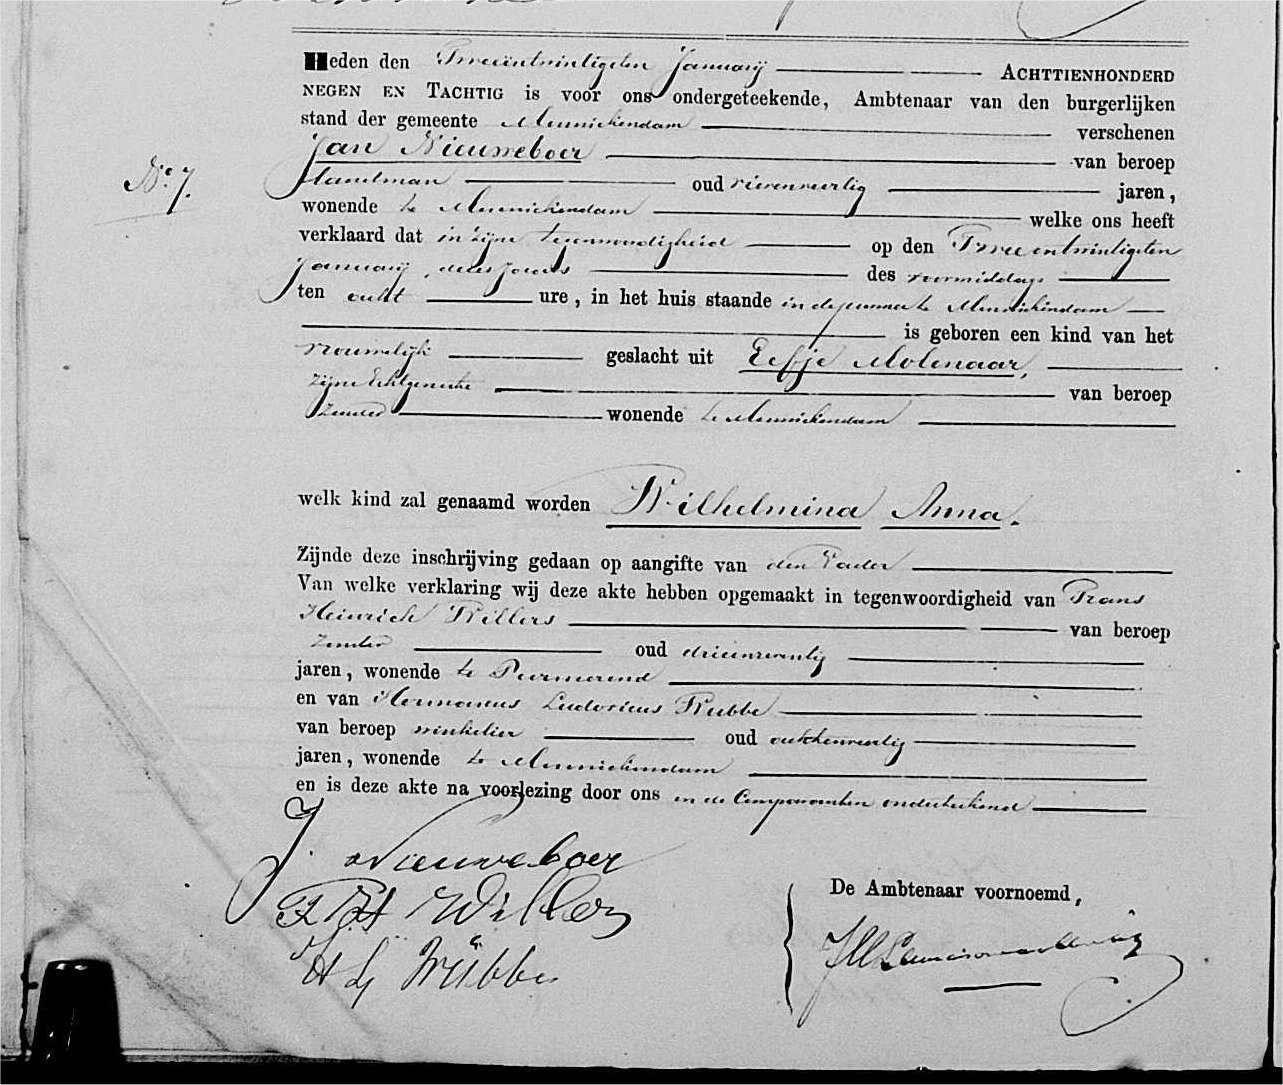 Heden den Tweeëntwintigsten Januarij ACHTTIENHONDERD
NEGEN EN TACHTIG is voor ons ondergeteekende, Ambtenaar van den burgerlijken
stand der gemeente Monnickendam verschenen
Jan Nieuweboer van beroep
No 7.
Landman oud vierenveertig jaren,
wonende te Monnickendam welke ons heeft
verklaard dat in zijne tegenwoordigheid op den Tweeentwintigsten
Januarij, dezes jaars des voormiddags
ten acht ure, in het huis staande in de te Monnickendam
is geboren een kind van het
vrouwelijk geslacht uit Eefje Molenaar,
zijne Echtgenoote van beroep
zonder wonende te Monnickendam
welk kind zal genaamd worden Wilhelmina Anna.
Zijnde deze inschrijving gedaan op aangifte van den Vader
Van welke verklaring wij deze akte hebben opgemaakt in tegenwoordigheid van Frans
Heinrich Willers van beroep
zonder oud drieenzeventig
jaren, wonende te Purmerend
en van Hermanus Ludovicus Wubbe
van beroep winkelier oud achtenveertig
jaren, wonende te Monnickendam
en is deze akte na voorlezing door ons en de Comparanten onderteekend
J. Nieuweboer
F H Willers
H L Wübbe
De Ambtenaar voornoemd,